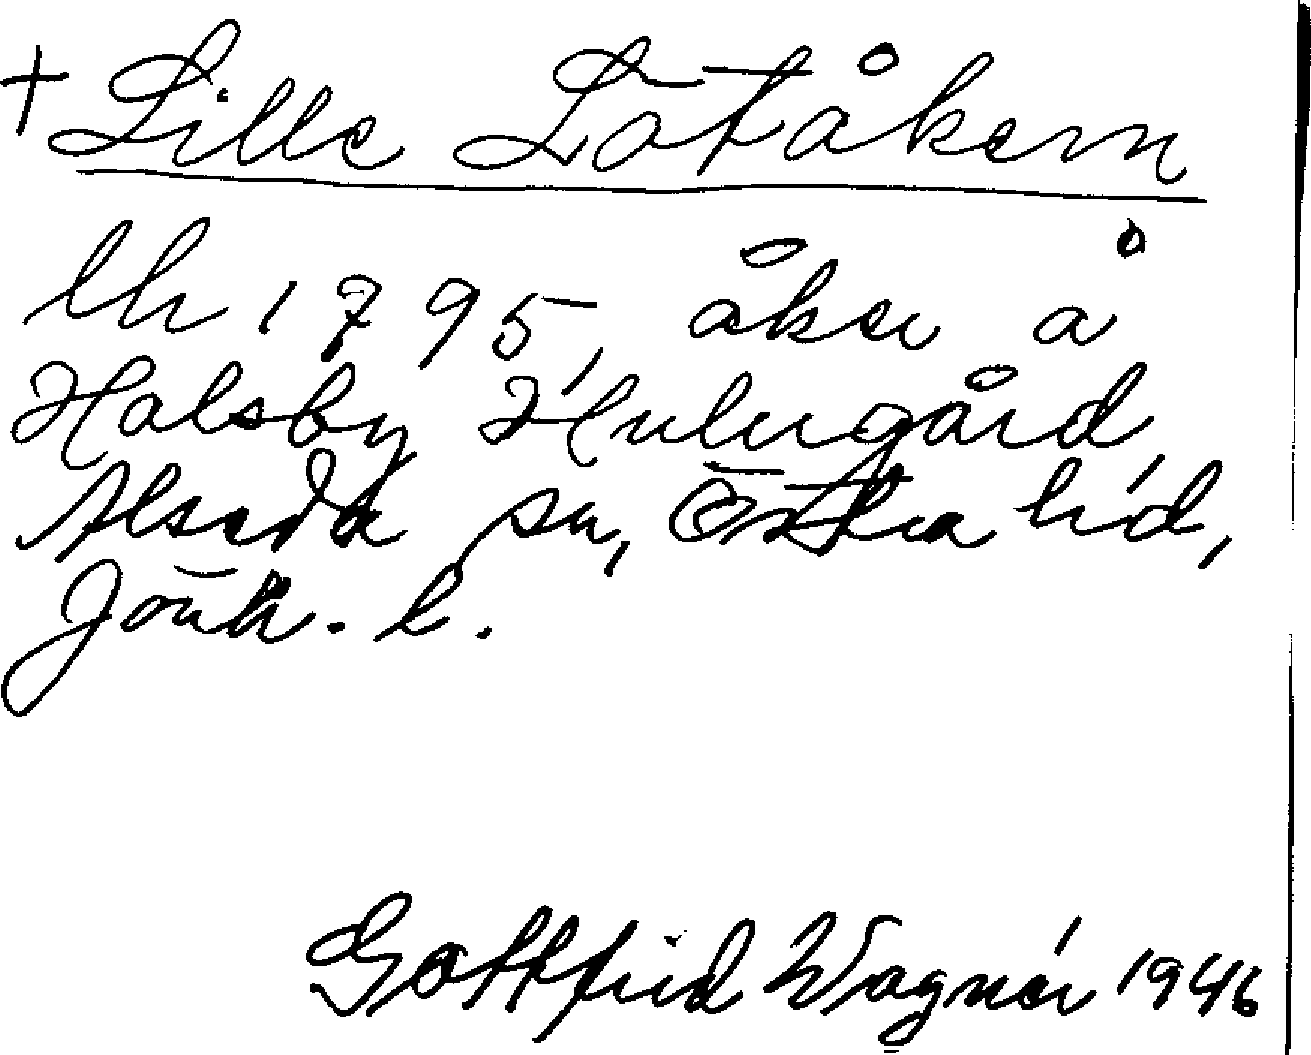 + Lille Lotåkern
lh 1795, åker å
Holsby Hulugård
Alseda sn, Östra hd,
Jönk. l.
Gottfrid Wagnér 1946